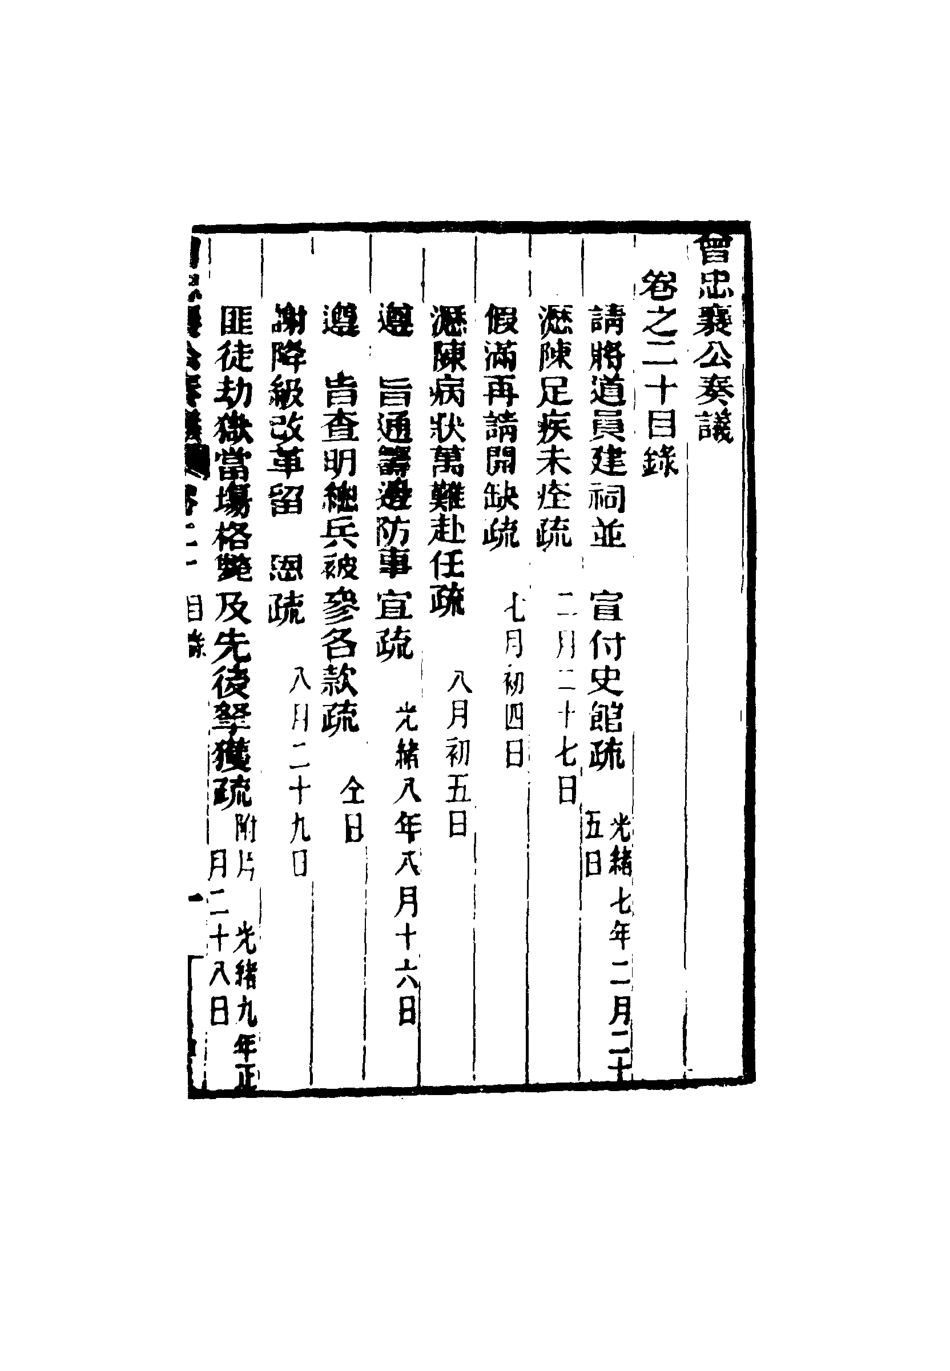 曾忠襄公奏議
卷之二十目錄
請將道員建祠並　宣付史館疏 光緒七年二月二十五日
瀝陳足疾未痊疏 二月二十七日
假滿再請開缺疏 七月初四日
瀝陳病狀萬難赴任疏 八月初五日
遵　旨通籌邊防事宜疏 光緒八年八月十六日
遵　旨查明總兵被參各款疏 仝日
謝降級改革留　恩疏 八月二十九日
匪徒劫獄當場格斃及先後拏獲疏 附片 光緒九年正月二十八日
卷二十 目錄 一